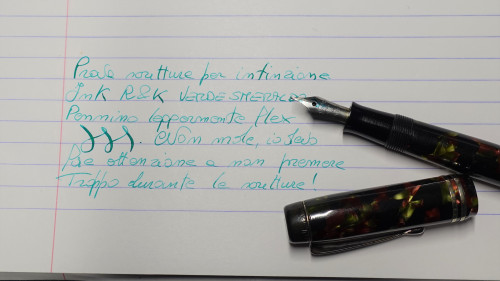 Prova scritture per intinzione
Ink R&K VERDE SMERALDO
Pennino leggermente flex
. Non male, io
fare attenzione a non premere
Troppo durante la scritture!